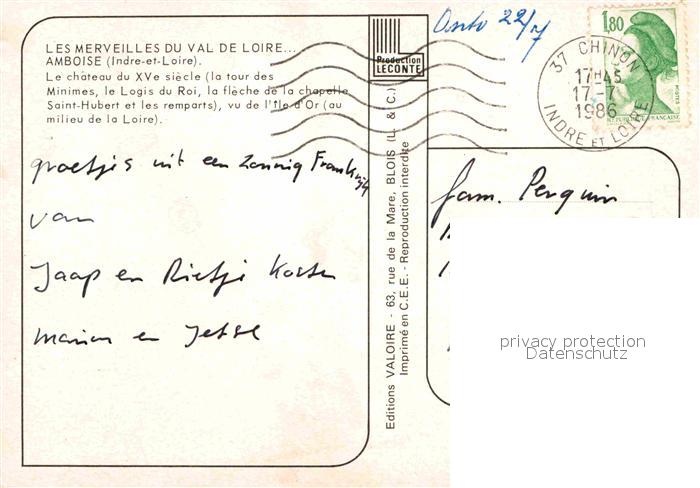 LES MERVEILLES DU VAL DE LOIRE...
AMBOISE (Indre-et-Loire).
Le château du XVe siècle (la tour des
Minimes, le Logis du Roi, la flèche de la chapelle
Saint-Hubert et les remparts), vu de l'Île d'Or (au
milieu de la Loire).
groetjes uit een zonnig Frankrijk
van
Jaap en Rietje
Marion en Jesse
Production
LECONTE
Editions VALOIRE - 63, rue de la Mare, BLOIS (L. & C.)
Imprimé en C.E.E. - Reproduction interdite
22/7
1,80
37 CHINON
17H45
17-7
1986
INDRE ET LOIRE
fam. Penguin
privacy protection
Datenschutz